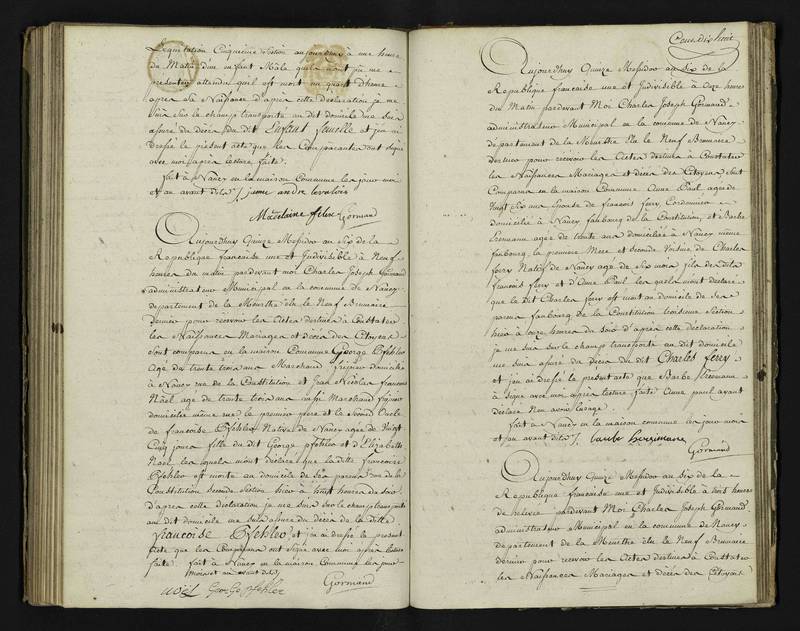 Legalité Cinquieme Section aujourdhuy à une heure
du Matin d'un enfant Mâle qu'elle n'ont pu me
presenter attendu qu'il est mort un quart d'heure
après sa Naissance d'après cette déclaration je me
suis sur le champ transporté au dit domicile me suis
assuré du décès du dit Enfant femelle et j'en ai
dressé le présent acte que les Comparantes ont signé
avec moi après lecture faite.
fait à Nancy en la maison Commune les jour moi
et an avant dits /.
Madelaine Gormand
Aujourdhuy Quinze Messidor an Six de la
République française une et Indivisible à Neuf
heures du matin pardevant moi Charles Joseph Gormand
administrateur Municipal en la commune de Nancy
departement de la Meurthe élu le Neuf Brumaire
dernier pour recevoir les Actes destinés à Constater
les Naissances Mariages et décès des Citoyens
Sont comparus en la maison Commune George Pfehler
age de trente trois ans Marchand fripier domicilié
à Nancy rue de la Constitution et Jean Nicolas francois
Nöel age de trente trois ans aussi Marchand fripier
domicilié même rue le premier pere et le second Oncle
de francoise Pfehler Native de Nancy agée de Vingt
Cinq jours fille du dit George pfehler et d'Elizabeth
Noel les quels m'ont déclaré que la ditte francoise
Pfehler est morte au domicile de ses parens rue de la
Constitution seconde Section hier à huit heures du soir
d'après cette déclaration je me suis sur le champ transporté
au dit domicile me suis assuré du décès de la ditte
francoise Pfehler et j'ai dressé le present
acte que les Comparans ont signé avec moi après lecture
faite. fait à Nancy en la maison Commune les jour
mois et an avant dits /.
noel George pfehler Gormand
Cent dix huit
Aujourdhuy Quinze Messidor an Six de la
République française une et Indivisible à Onze heures
du Matin pardevant Moi Charles Joseph Gormand
administrateur Municipal en la commune de Nancy
departement de la Meurthe élu le Neuf Brumaire
dernier pour recevoir les Actes destinés à Constater
les Naissances Mariages et décès des Citoyens, sont
Comparus en la maison Commune Anne Paul agée de
Vingt Six ans Epouse de francois fery, Cordonnier
domiciliée à Nancy faubourg de la Constitution, et Barbe
agée de trente ans domiciliée à Nancy même
faubourg, la premiere Mere et seconde Voisine de Charles
fery Natif de Nancy agé de Six mois fils du dit
francois fery et d'Anne Paul les quels m'ont déclaré
que le dit Charles fery est mort au domicile de ses
parens faubourg de la Constitution troisieme Section
hier à onze heures du soir d'après cette déclaration
je me suis sur le champ transporté au dit domicile
me suis assuré du décès du dit Charles fery
et j'en ai dressé le present acte que Barbe
à signé avec moi après lecture faite Anne paul ayant
declaré Non avoir l'usage.
fait à Nancy en la maison commune les jour mois
et an avant dits /.
Gormand
Aujourdhuy Quinze Messidor an Six de la
République française une et Indivisible à trois heures
de relevée pardevant Moi Charles Joseph Gormand
administrateur Municipal en la commune de Nancy
departement de la Meurthe élu le Neuf Brumaire
dernier pour recevoir les Actes destinés à Constater
les Naissances Mariages et décès des Citoyens